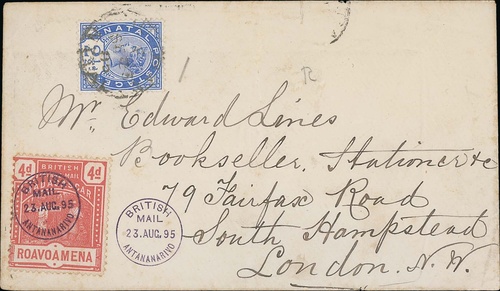 NATAL POSTAGE
R
Mr. Edward Lines
Bookseller. Stationer &c
79 Fairfax Road
South Hampstead
London. N. W.
4d BRITISH 4d
MAIL
BRITISH
MAIL
23. AUG. 95
ANTANANARIVO
ROAVOAMENA
BRITISH
MAIL
23. AUG. 95
ANTANANARIVO